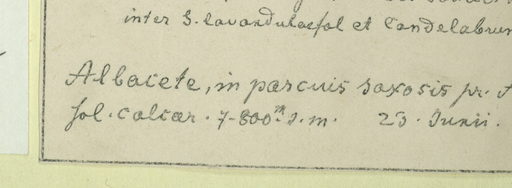 inter S. lavandulaefol et Candelabrum
Albacete, in pascuis saxosis pr.
sol. calcar. 7-800 m. s. m. 23. Junii.